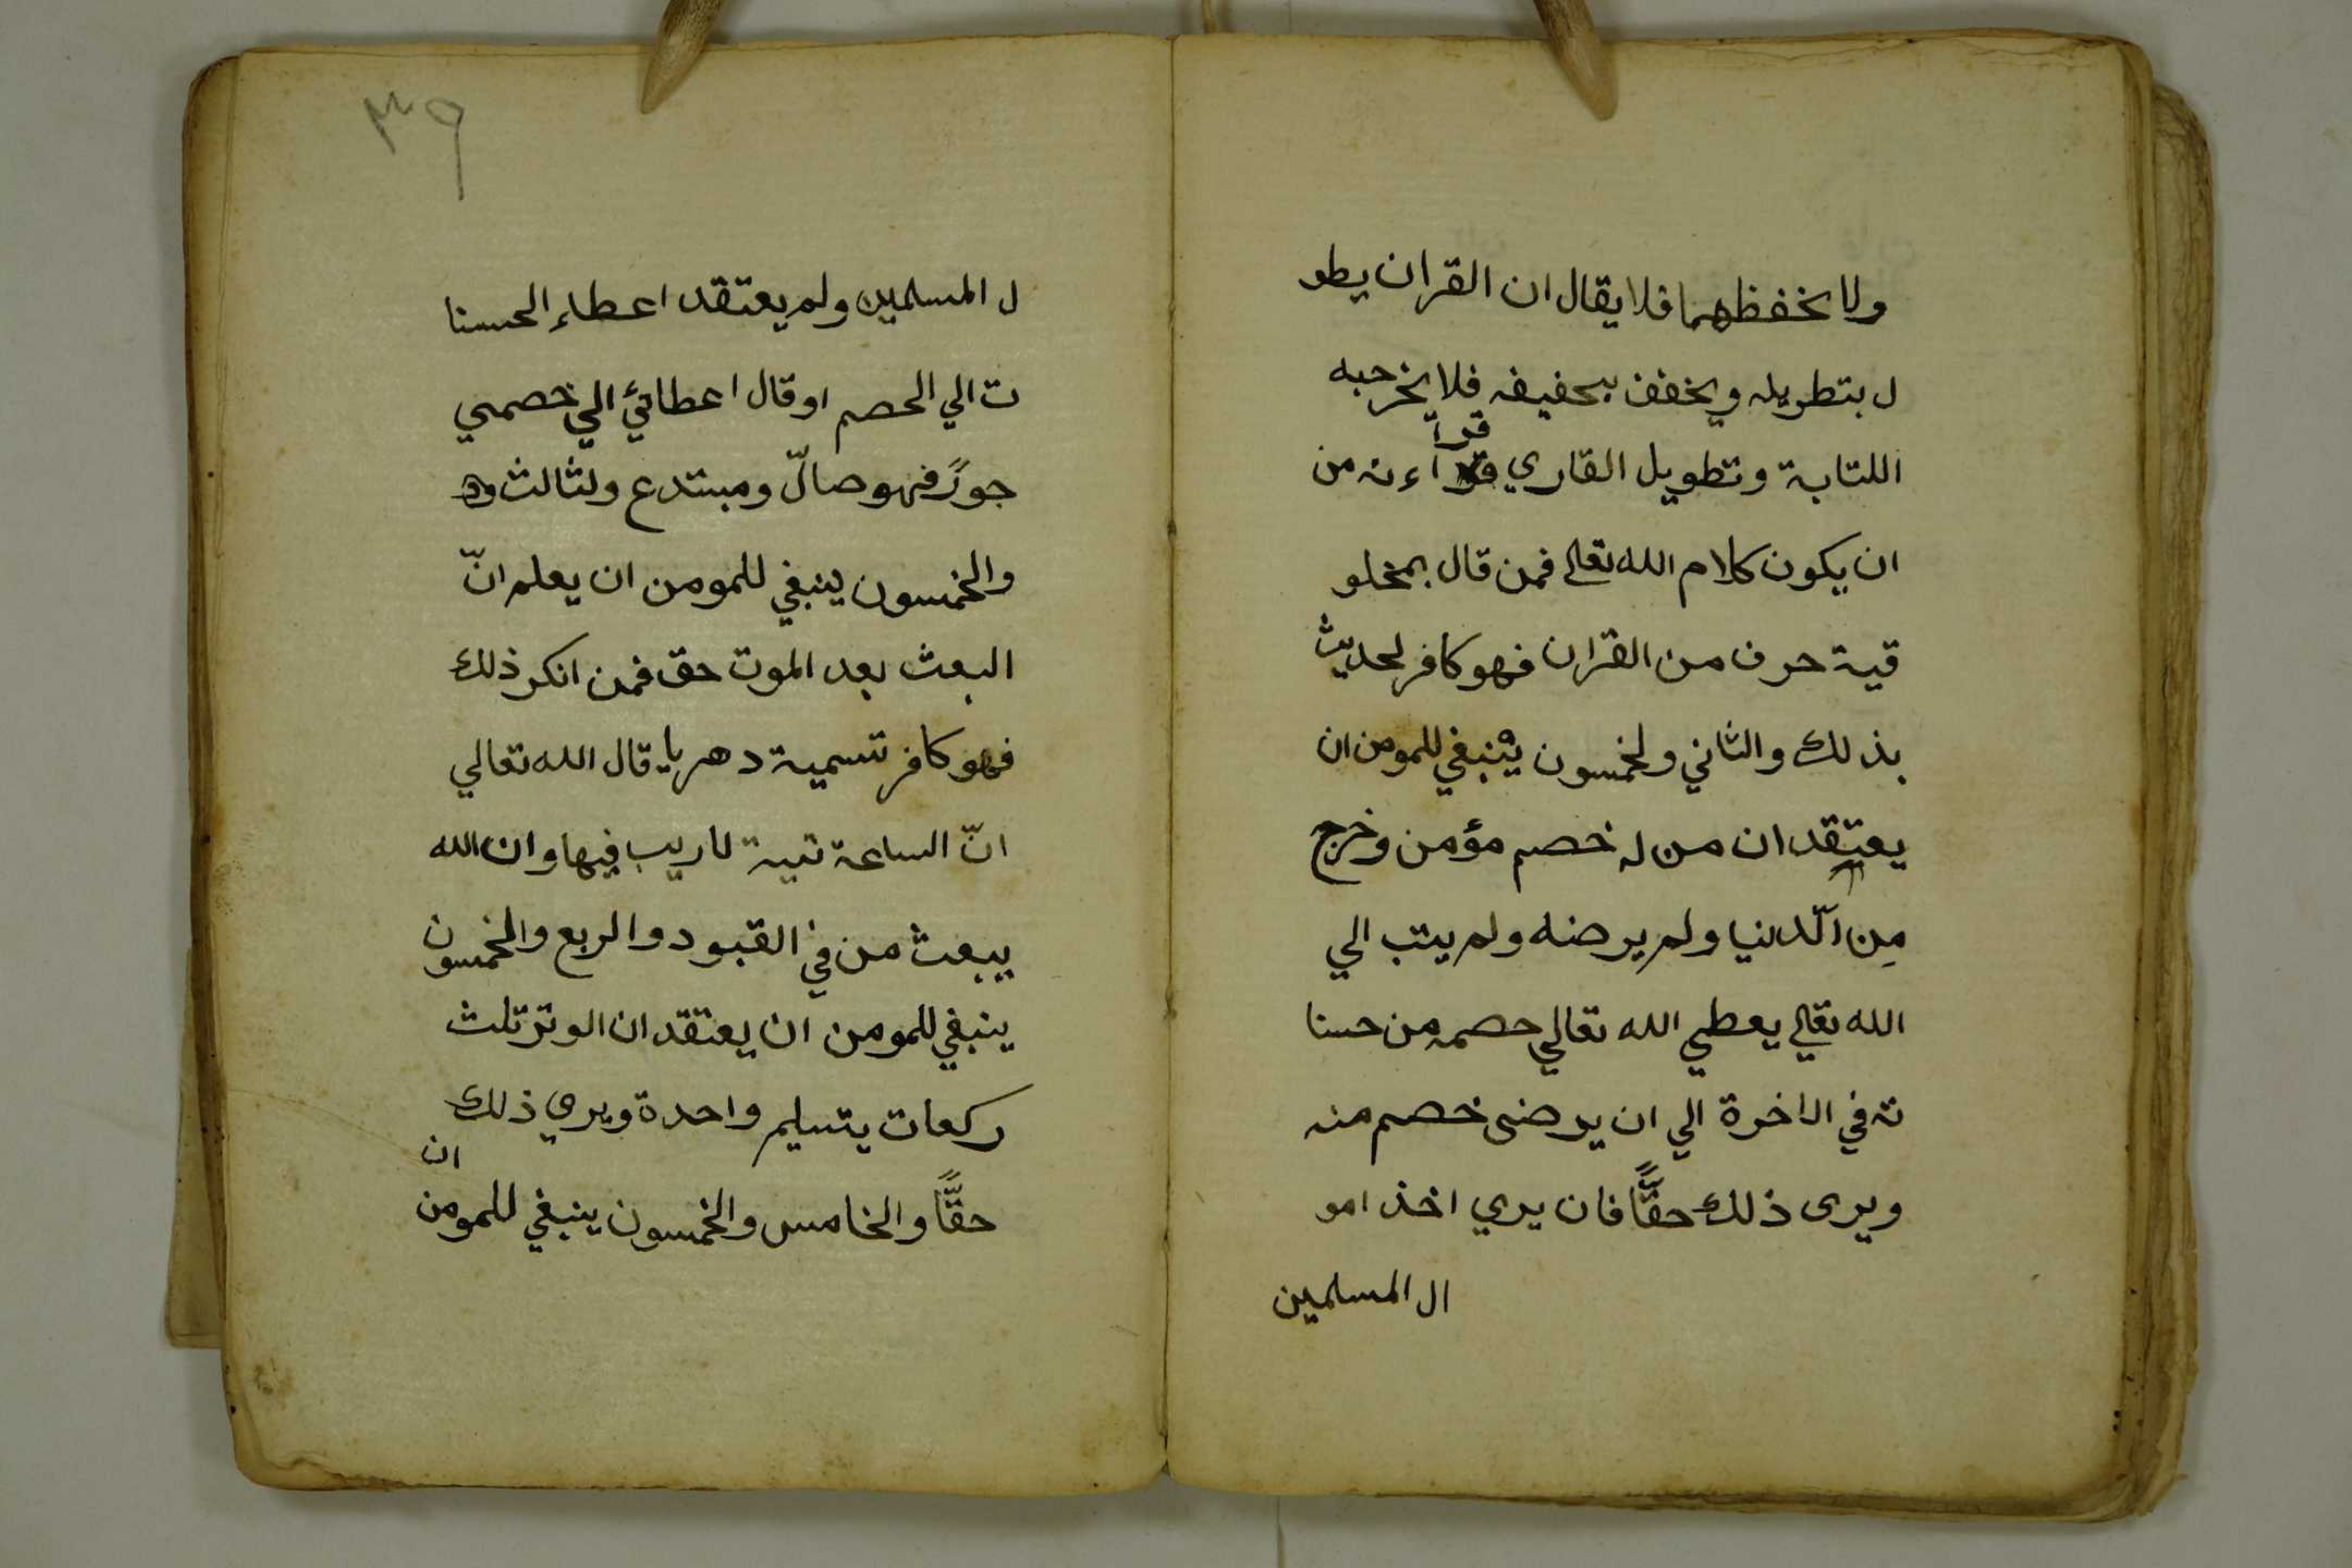 ولا يخفظهما فلا يقال ان القران يطو
ل بتطويله ويخفف بحفيفه فلا يخرجه
اللتابة وتطويل القاري قرآءته من
قرا
ان يكون كلام الله تعالى فمن قال بمخلو
قية حرف من القران فهو كافر لحديث
بذلك والثاني ولخمسون ينبغي للمومن ان
يعتقد ان من له خصم مؤمن وخرج
مِن الّدنيا ولم يرضه ولم يتب الي
الله تعالي يعطي الله تعالي حصمه من حسنا
ته في الاخرة الي ان يرضى خصم منه
ويرى ذلك حقًّا فان يري اخذ امو
ال المسلمين
٣٩
ل المسلمين ولم يعتقد اعطاء الحسنا
ت الي الحصم اوقال اعطائي الي خصمي
جورً فهو صالّ ومبتدع ولثالث
والخمسون ينبغي للمومن ان يعلم انّ
البعث بعد الموت حق فمن انكر ذلك
فهو كافر تسمية دهريا قال الله تعالي
انّ الساعة تيية لاريب فيها وان الله
يبعث من في القبود والربع والخمسون
ينبغي للمومن ان يعتقد ان الوتر تلث
ركعات يتسليم واحدة ويري ذلك
حقًّا والخامس والخمسون ينبغي للمومن ان